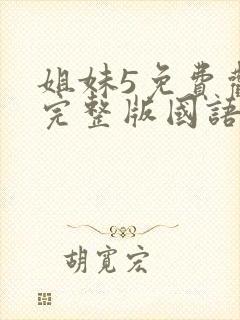 姐妹5免費觀
完整版國語
胡寬宏